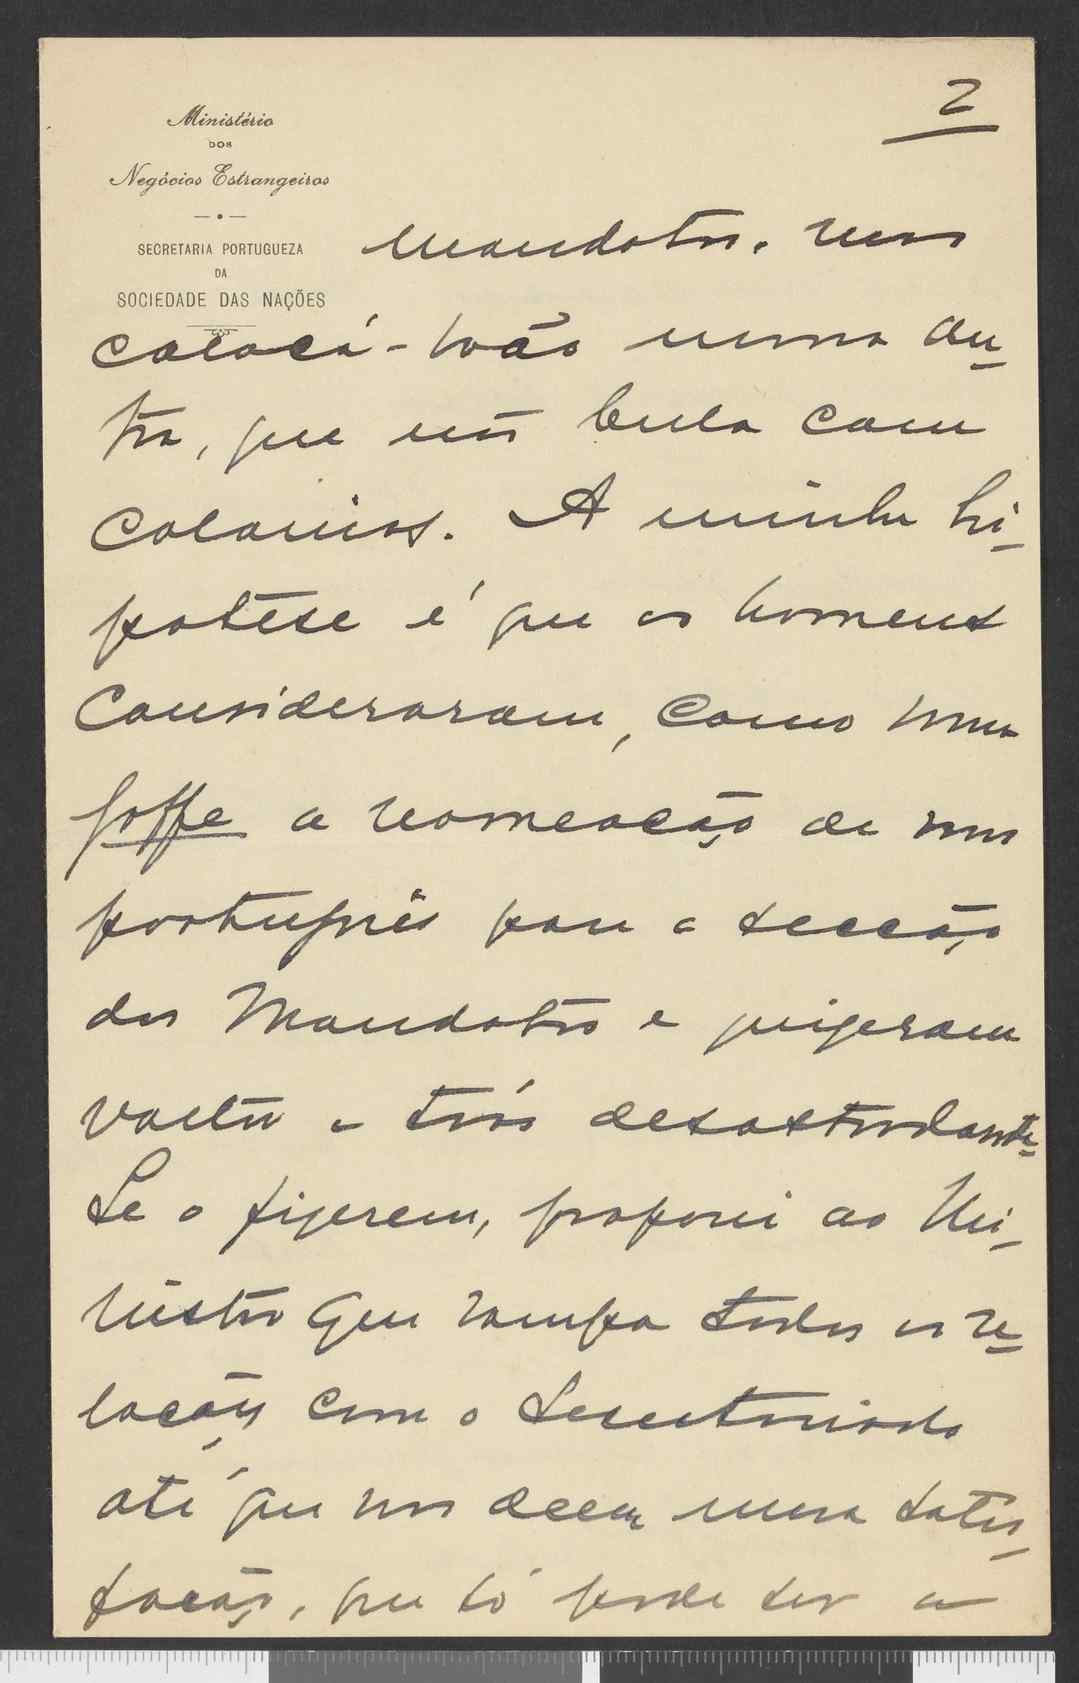 2
Ministério
DOS
Negócios Estrangeiros
SECRETARIA PORTUGUEZA
DA
SOCIEDADE DAS NAÇÕES
Mandatos, mas
colocá-lo-ão numa ou-
tra, que não bula com
colonias. A minha hi-
potese é que os homens
consideraram, como uma
gaffe a nomeação de um
português para a secção
dos Mandatos e quizeram
voltar a trás desastradamte.
Se o fizerem, proporei ao Mi-
nistro que rompa todas as re-
lações com o Secretariado
até que nos deem uma satis-
fação, que só pode ser a